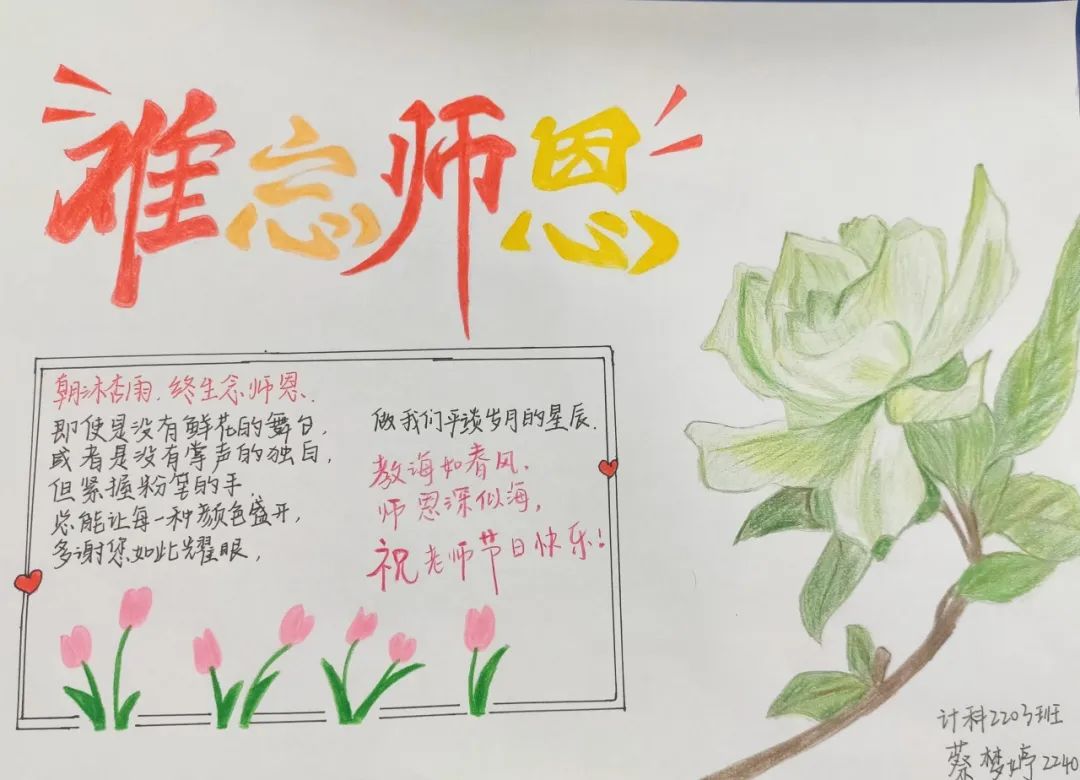 难忘师恩
朝沐杏雨,终生念师恩.
即使是没有鲜花的舞台,
或者是没有掌声的独白,
但紧握粉笔的手,
总能让每一种颜色盛开,
多谢您如此耀眼,
做我们平谈岁月的星辰.
教海如春风,
师恩深似海,
祝老师节日快乐!
计科2203班
蔡梦婷2240